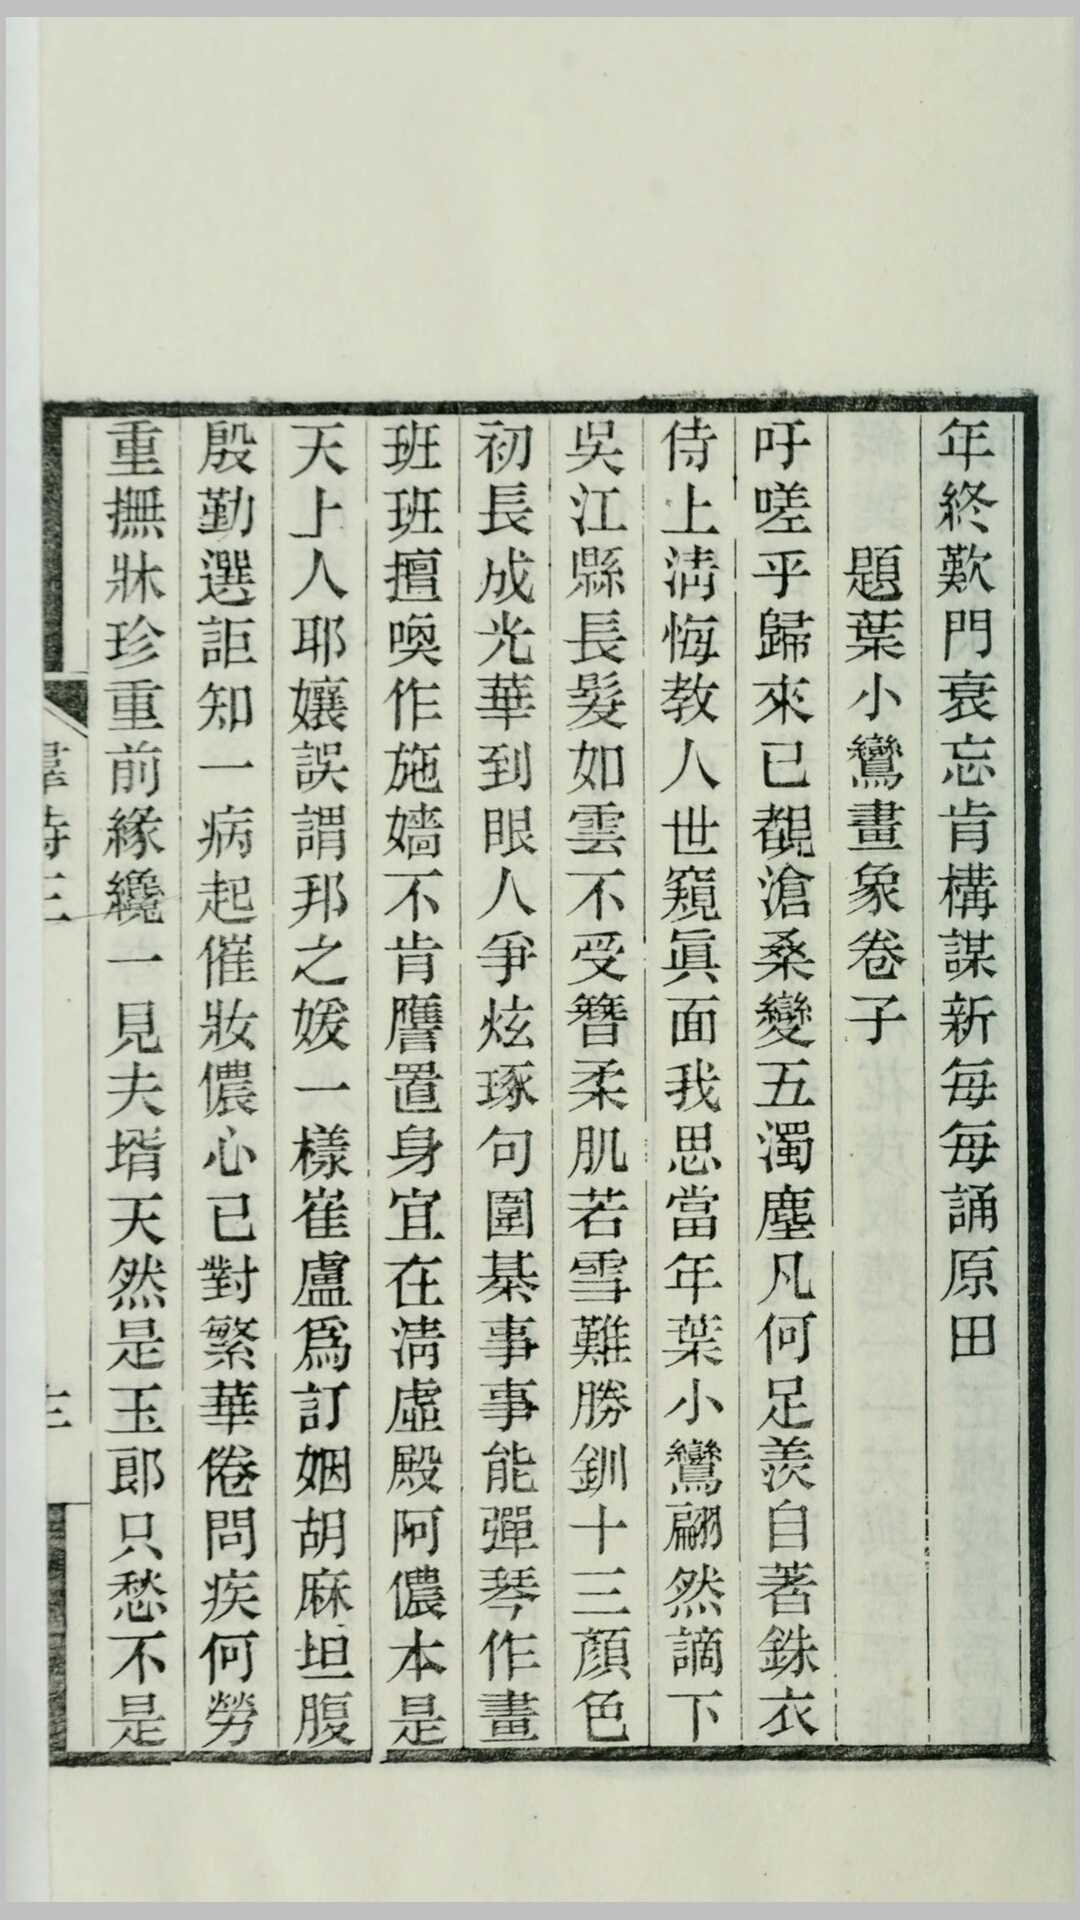 年終歎門衰忘肯構謀新每每誦原田
題葉小鸞畫象卷子
吁嗟乎歸來已覩滄桑變五濁塵凡何足羨自著銖衣
侍上淸悔教人世窺眞面我思當年葉小鸞翩然謫下
吳江縣長髮如雲不受簪柔肌若雪難勝釧十三顏色
初長成光華到眼人爭炫琢句圍棊事事能彈琴作畫
班班擅喚作施嬙不肯譍置身宜在淸虛殿阿儂本是
天上人耶孃誤謂邦之媛一樣崔盧爲訂姻胡麻坦腹
殷勤選詎知一病起催妝儂心已對繁華倦問疾何勞
重撫牀珍重前緣纔一見夫壻天然是玉郎只愁不是